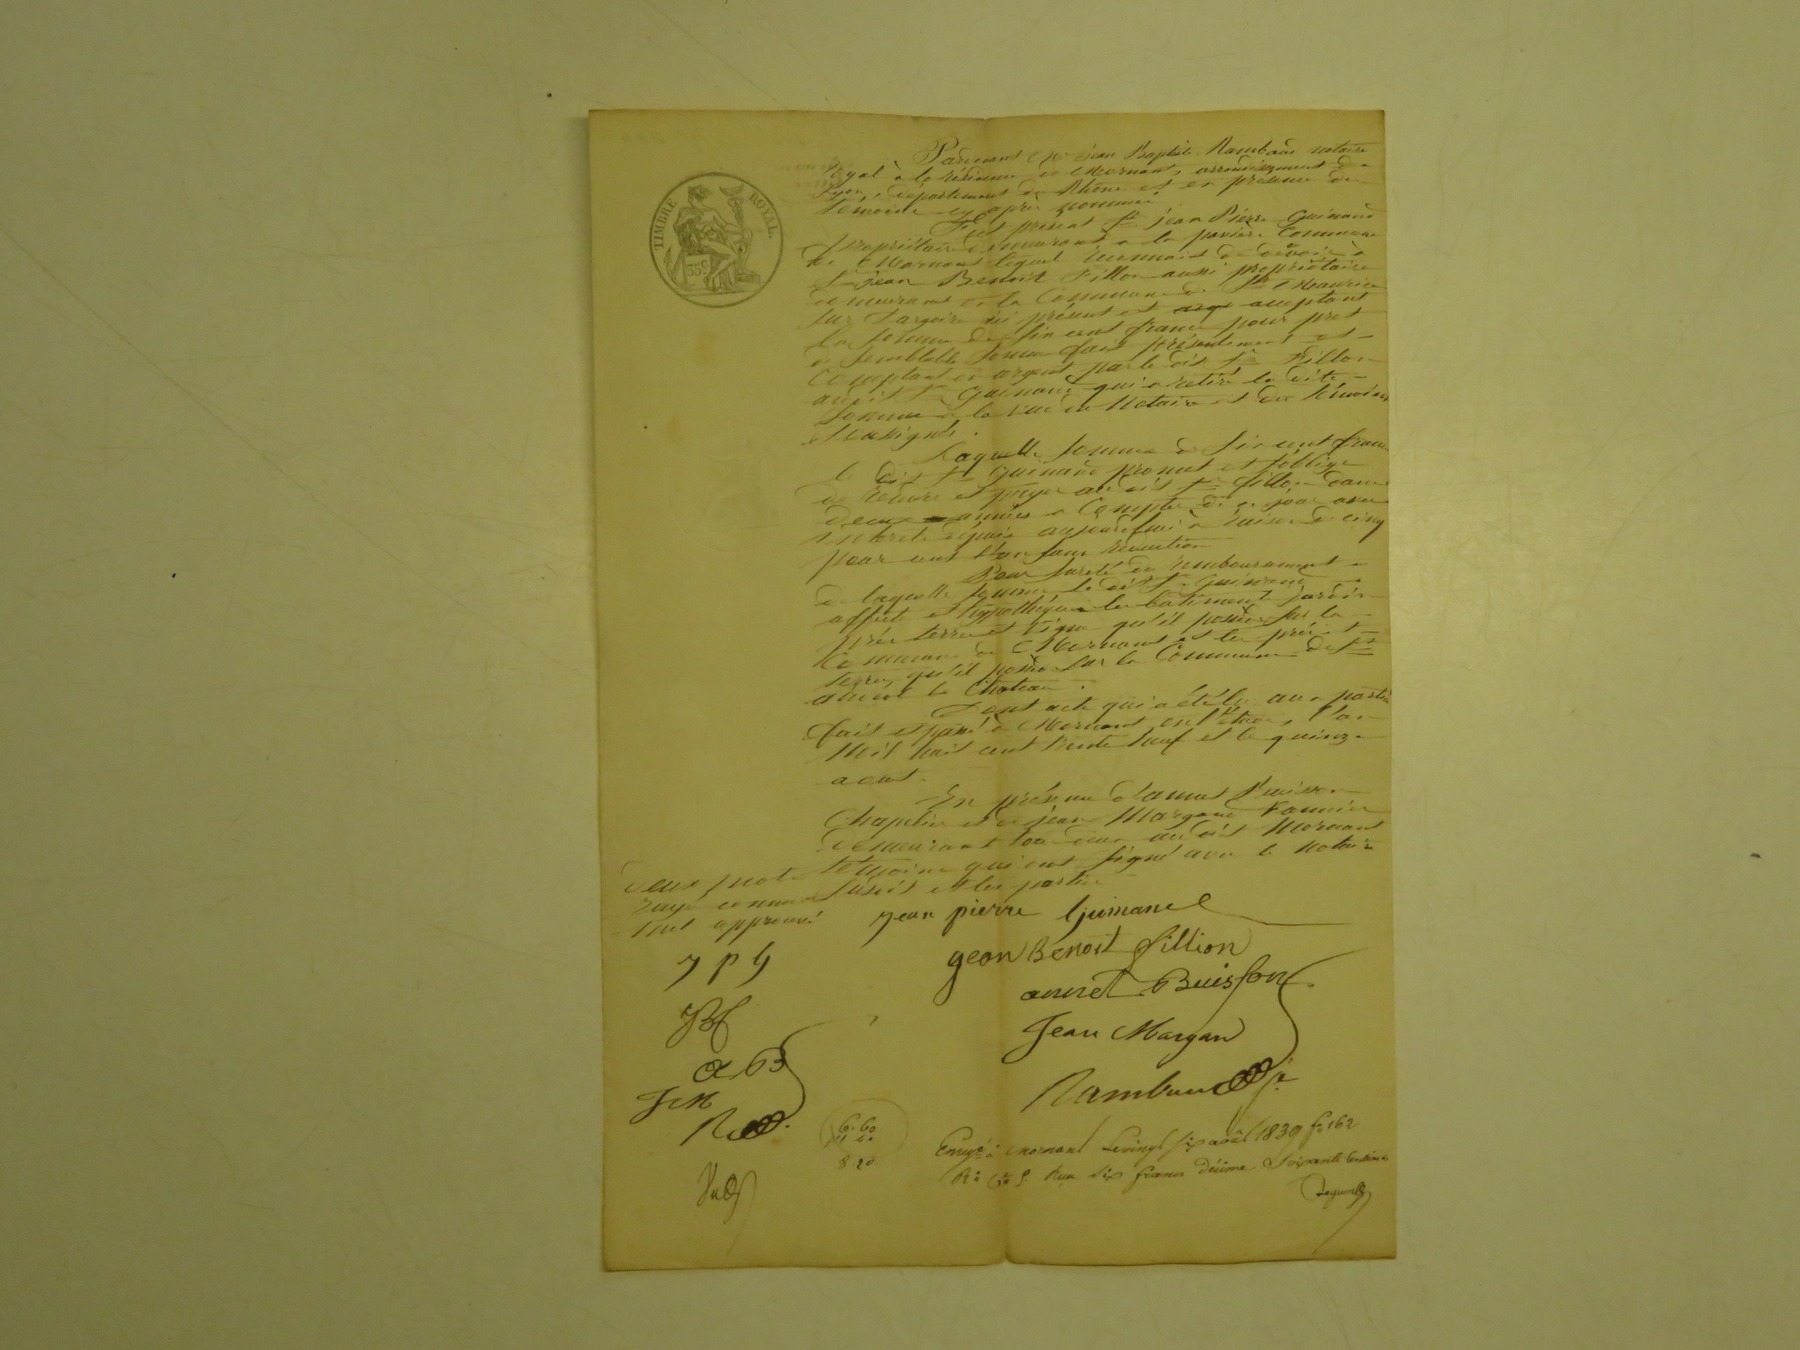 TIMBRE ROYAL.
35 C.
Pardevant Me Jean Baptiste Rambaud notaire
royal à la résidence de Mornant, arrondissement de
Lyon, département du Rhône et en présence des
témoins cy après nommés
Est présent Sr jean Pierre Guinand
propriétaire demeurant à la Commune
de Mornant lequel reconnait de devoir à
Sr jean Benoit Fillon aussi propriétaire
demeurant en la Commune de St Maurice
sur Dargoire ici présent et acceptant
la somme de six cent francs pour pret
de semblable somme fait présentement et
comptant en argent par le dit Sr Fillon
audit Sr Guinand qui a retiré la dite
somme à la vue du Notaire et des témoins
soussignés.
Laquelle somme de six cent francs
le dit Sr Guinand promet et s'oblige
de rendre et payer au dit Sr fillon dans
deux années à Compter de ce jour avec
intérêts depuis aujourd'hui à raison de cinq
pour cent l'an sans rétention
Pour sureté du remboursement
de laquelle somme le dit Sr Guinand
affecte et hypothèque les batiments jardin
prés terres et vigne qu'il possède sur la
Commune de Mornant et les prés et
terres qu'il possède sur la Commune de St
andéol le Chateau.
Dont acte qui a été lu aux parties
fait et passé à Mornant en l'étude, l'an
Mil huit cent trente neuf et le quinze
aout.
En présence d'annet Buisson
Chapelier et de jean Margand
demeurant tous deux au dit Mornant
témoins qui ont signé avec le notaire
susdit et les parties
deux mots
rayé comme
nul approuvé
jean pierre Guinand
geon Benoit fillion
annet Buisson
Jean Margan
Rambaud
J P G
JBf
a B
J M
R
6.60
1.60
8.20
Enregé à mornant le vingt six août 1839 fo 162
Ro Ce 5. Reçu six francs décime soixante centimes